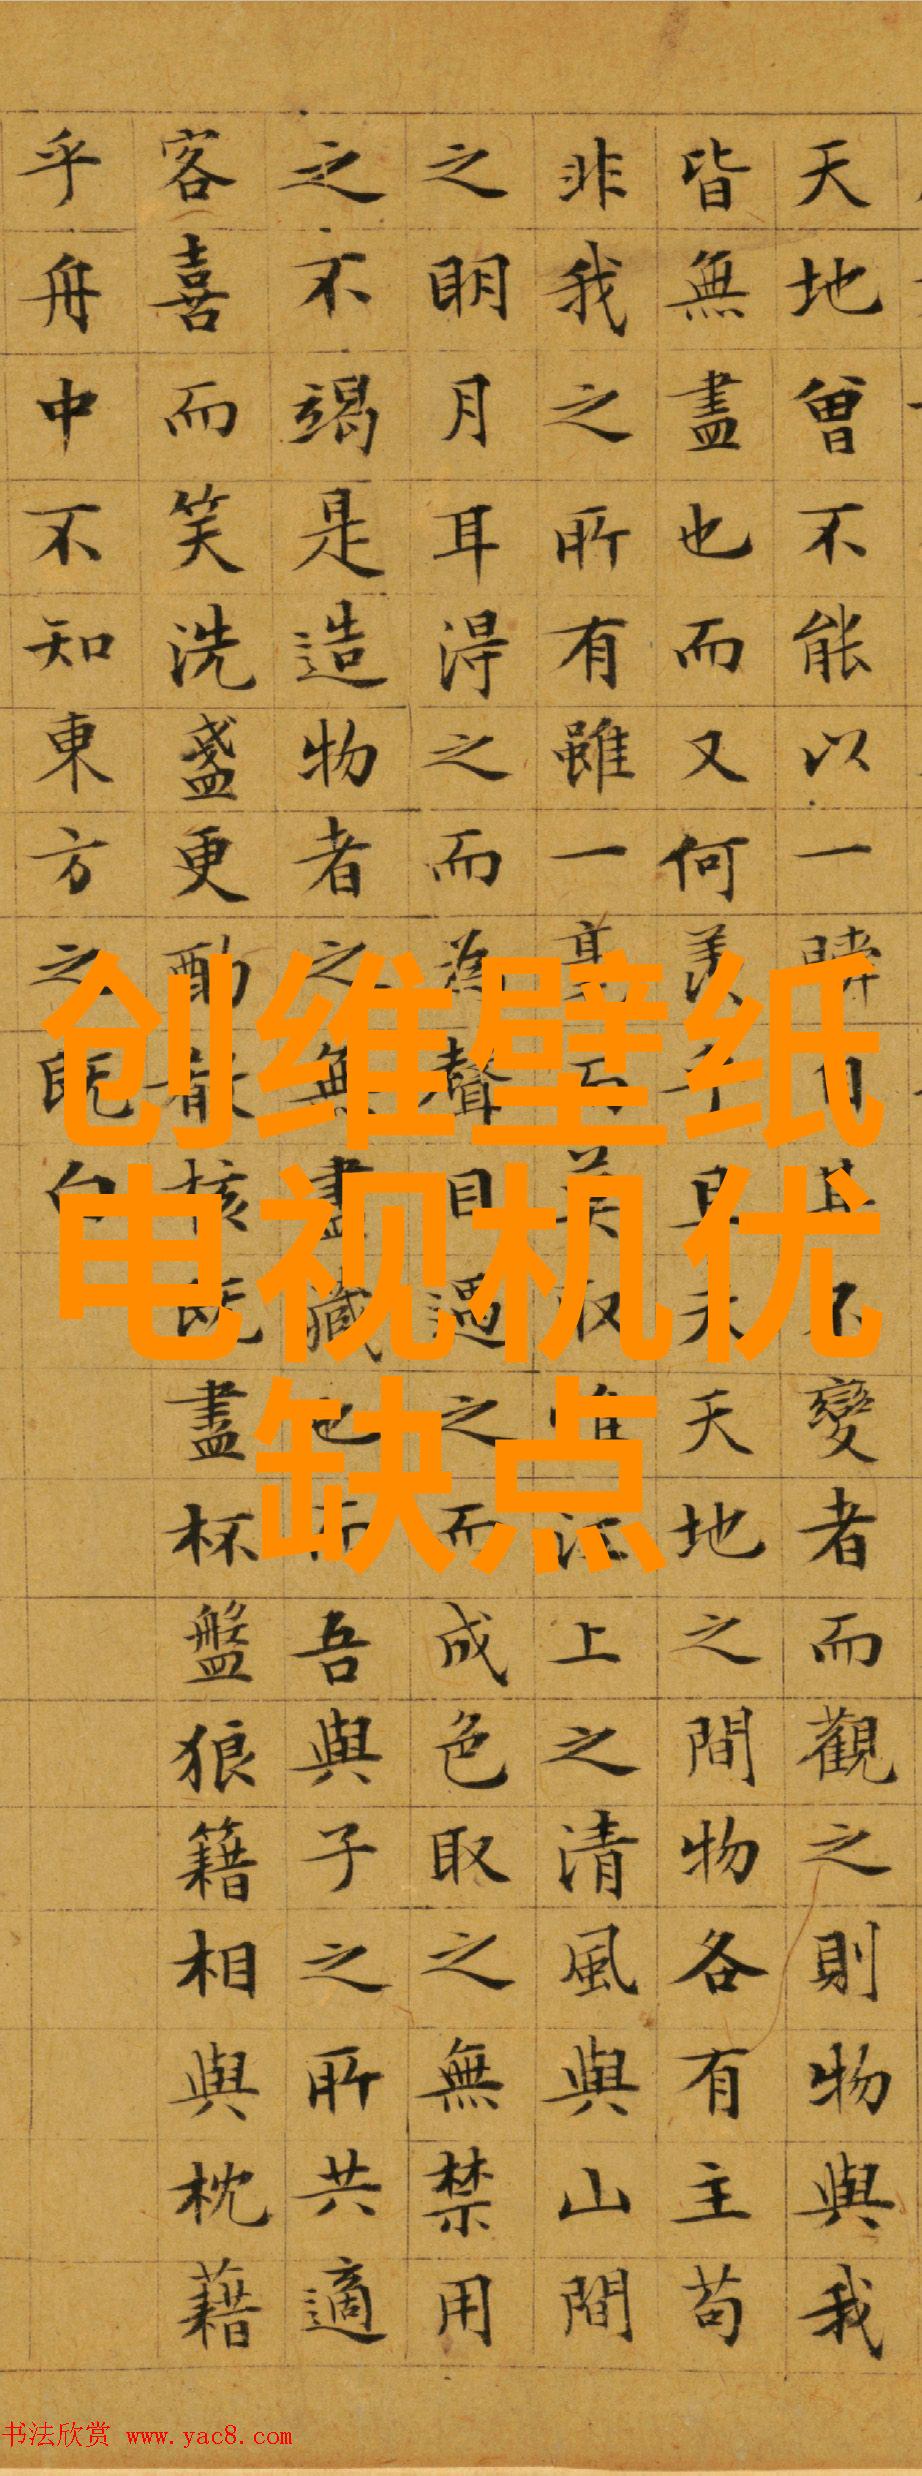 天地曾不能以一瞬自其不變者而觀之則物與我
皆無盡也而又何羨乎且夫天地之間物各有主苟
非我之所有雖一毫而莫取惟江上之清風與山間
之明月耳得之而為聲目遇之而成色取之無禁用
之不竭是造物者之無盡藏也而吾與子之所共適
客喜而笑洗盞更酌肴核既盡杯盤狼籍相與枕藉
乎舟中不知東方之既白
创维壁纸
电视机优
缺点
书法欣赏 www.yac8.com